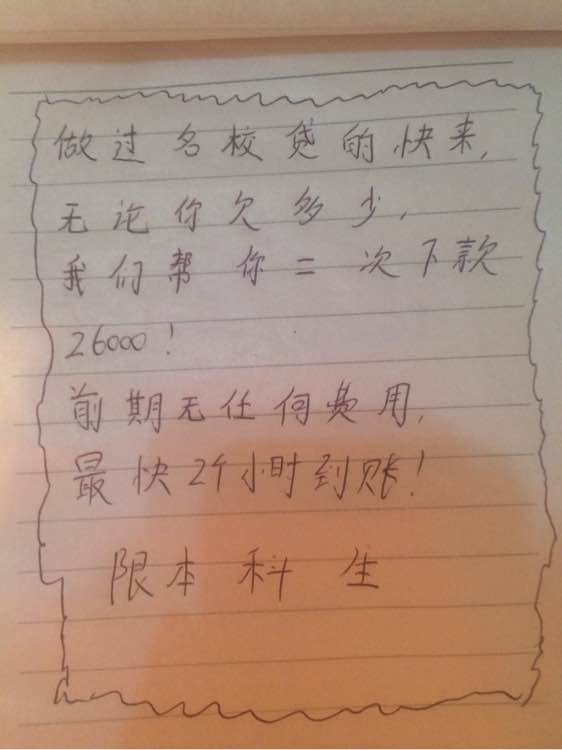 做过名校贷的快来,
无论你欠多少,
我们帮你二次下款
26000!
前期无任何费用,
最快2个小时到账!
限本科生